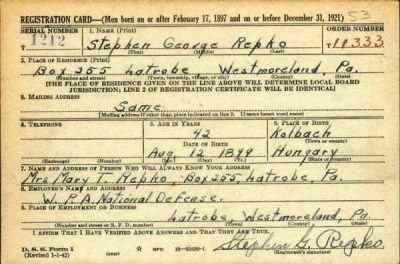 REGISTRATION CARD—(Men born on or after February 17, 1897 and on or before December 31, 1921) 53
SERIAL NUMBER 1. NAME (Print) ORDER NUMBER
1212 Stephen George Repko 11333
(First) (Middle) (Last)
2. PLACE OF RESIDENCE (Print)
Box 255 Latrobe Westmoreland, Pa.
(Number and street) (Town, township, village, or city) (County) (State)
[THE PLACE OF RESIDENCE GIVEN ON THE LINE ABOVE WILL DETERMINE LOCAL BOARD
JURISDICTION; LINE 2 OF REGISTRATION CERTIFICATE WILL BE IDENTICAL]
3. MAILING ADDRESS
Same
[Mailing address if other than place indicated on line 2. If same insert word same]
4. TELEPHONE 5. AGE IN YEARS 6. PLACE OF BIRTH
42 Kolbach
DATE OF BIRTH (Town or county)
Aug. 12 1899 Hungary
(Exchange) (Number) (Mo.) (Day) (Yr.) (State or country)
7. NAME AND ADDRESS OF PERSON WHO WILL ALWAYS KNOW YOUR ADDRESS
Mrs. Mary T. Repko, Box 255 Latrobe, Pa.
8. EMPLOYER'S NAME AND ADDRESS
W. P. A. National Defense.
9. PLACE OF EMPLOYMENT OR BUSINESS
Latrobe, Westmoreland, Pa.
(Number and street or R. F. D. number) (Town) (County) (State)
I AFFIRM THAT I HAVE VERIFIED ABOVE ANSWERS AND THAT THEY ARE TRUE.
D. S. S. Form 1 GPO Stephen G. Repko
(Revised 1-1-42) (Registrant's signature)